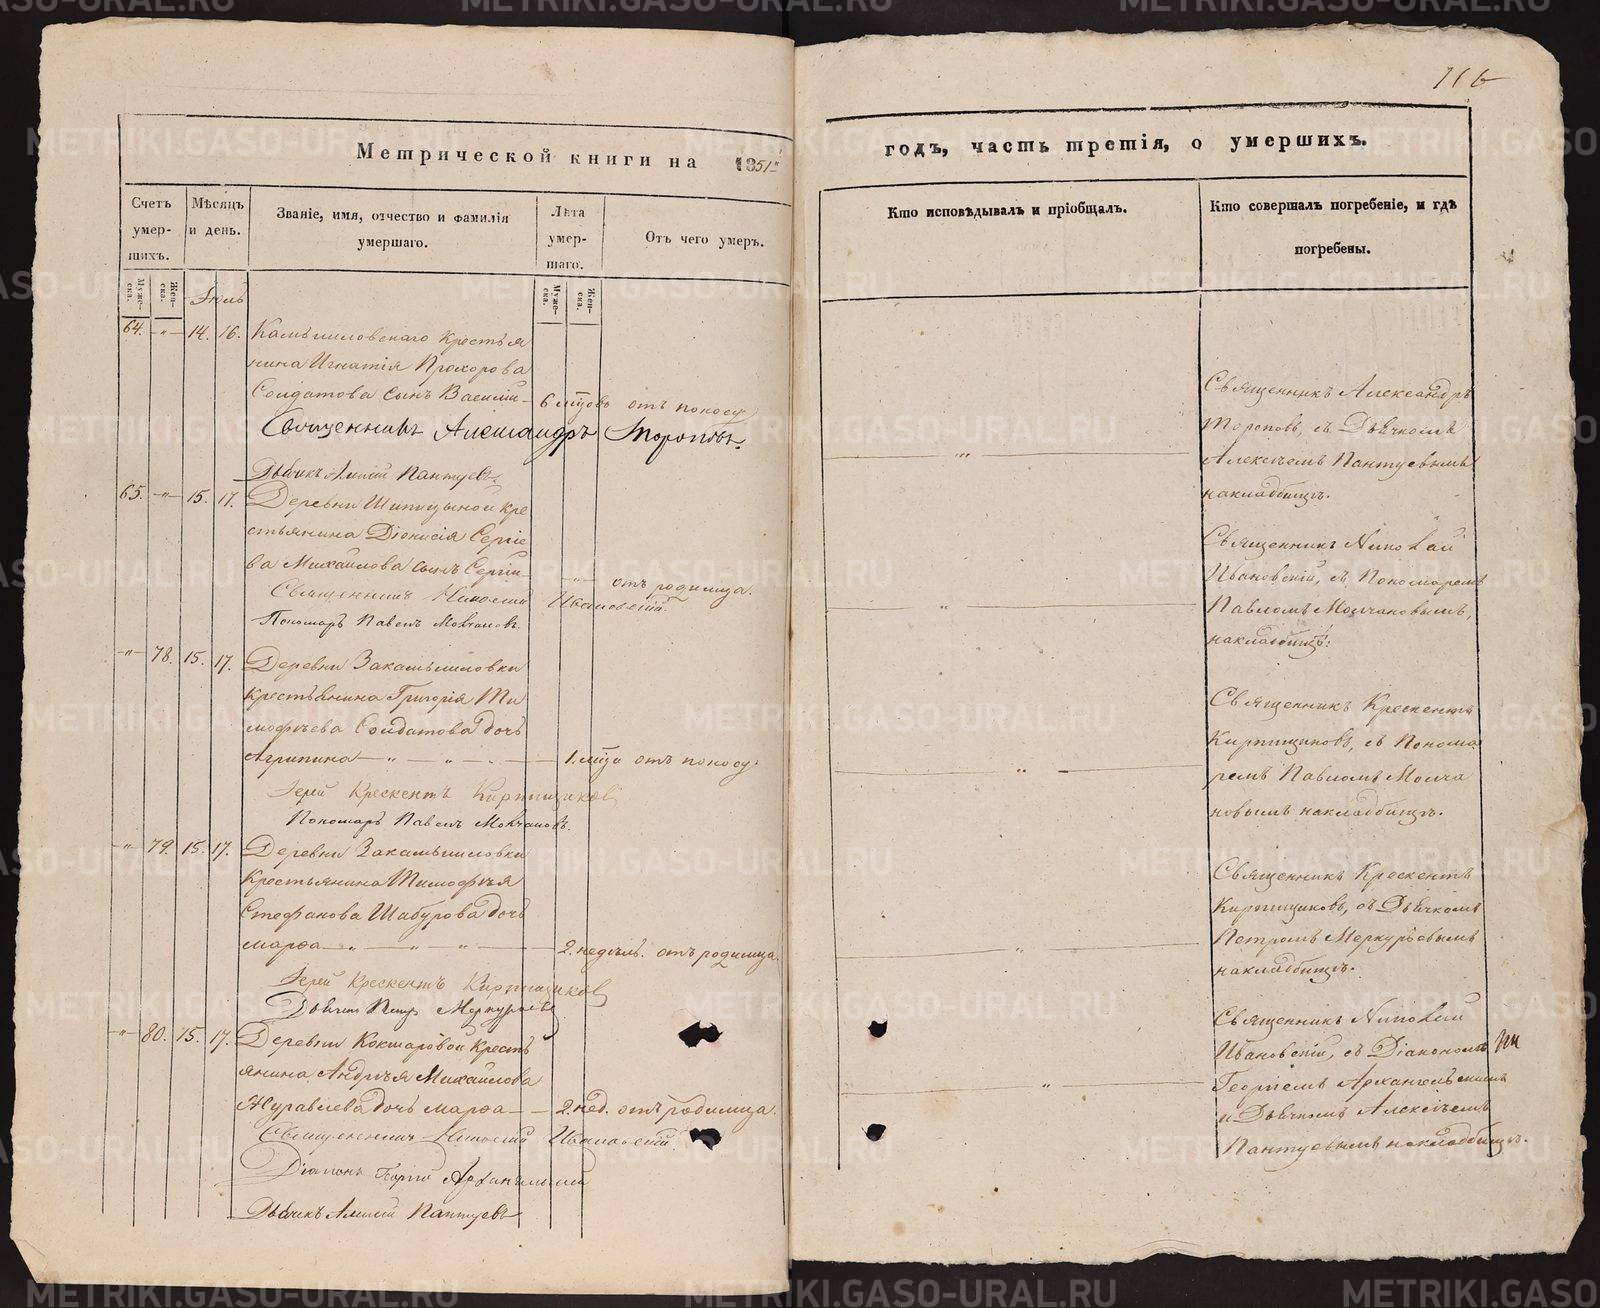 116
Метрической книги на 1851
годъ, часть третія, о умершихъ.
Счетъ умер-
шихъ.
Мѣсяцъ
и день.
Званіе, имя, отчество и фамилія
умершаго.
Лѣта
умер-
шаго.
Отъ чего умеръ.
Кто исповѣдывалъ и пріобщалъ.
Кто совершалъ погребеніе, и гдѣ
погребены.
Муже-
ска.
Жен-
ска.
Муже-
ска.
Жен-
ска.
Іюль
64. — " — 14. 16. Камышловскаго крестья
нина Игнатія Прохорова
Солдатова сынъ Василій — 6 мцовъ отъ поносу
Священникъ Александръ Тороповъ
Дьячикъ Алексій Пантуевъ.
Священникъ Александръ
Тороповъ, съ Дьячкомъ
Алексѣемъ Пантуевымъ
накладбищѣ.
65. — " — 15. 17. Деревни Шипицыной кре
стьянина Діонисія Сергіе
ва Михайлова сынъ Сергій — " — отъ родимца.
Священникъ Николай Ивановскій.
Пономарь Павелъ Молчановъ.
Священникъ Николай
Ивановскій, съ Пономаремъ
Павломъ Молчановымъ,
накладбищѣ.
— " — 78. 15. 17. Деревни Закамышловки
крестьянина Григорія Ти
мофѣева Солдатова дочь
Агрипина — " — " — 1. мца отъ поносу
Іерей Крескентъ Кирпищиковъ
Пономарь Павелъ Молчановъ.
Священникъ Крескентъ
Кирпищиковъ, съ Понома
ремъ Павломъ Молча
новымъ накладбищѣ.
— " — 79. 15. 17. Деревни Закамышловки
крестьянина Тимофѣя
Стефанова Шабурова дочь
Марѳа — " — " — 2. недѣль. отъ родимца.
Іерей Крескентъ Кирпищиковъ
Дьячекъ Петръ Меркурьевъ
Священникъ Крескентъ
Кирпищиковъ, съ Дьячкомъ
Петромъ Меркурьевымъ
накладбищѣ.
— " — 80. 15. 17. Деревни Кокшаровой кресть
янина Андрѣя Михайлова
Журавлева дочь Марѳа — 2. нед. отъ родимца.
Священникъ Николай Ивановскій
Діаконъ Георгій Архангельскій
Дьячикъ Алексій Пантуевъ
Священникъ Николай
Ивановскій, съ Діакономъ
Георгіемъ Архангельскимъ
и Дьячкомъ Алексѣемъ
Пантуевымъ накладбищѣ.
METRIKI.GASO-URAL.RU